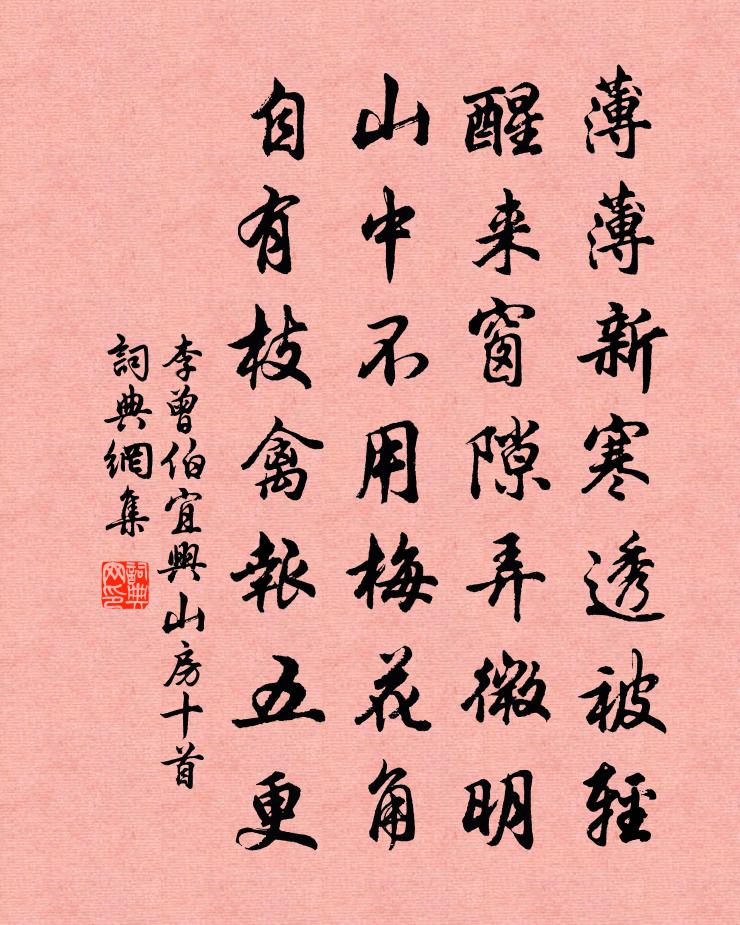 薄薄新寒透被輕
醒来窗隙弄微明
山中不用梅花角
自有枝禽報五更
李曾伯宜興山房十首
詞典網集
詞典网印